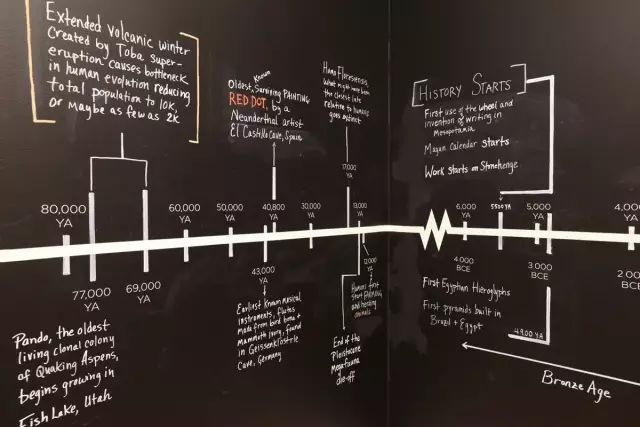 Extended volcanic winter
created by Toba super-
eruption causes bottleneck
in human evolution reducing
total population to 10K,
or maybe as few as 2K
Known
Oldest, Surviving PAINTING
RED DOT, by a
Neanderthal artist
El Castillo Cave, Spain
Homo Floresiensis,
what might have been
the closest late
relative to humans
goes extinct
HISTORY STARTS
First use of the wheel and
invention of writing in
Mesopotamia
Mayan Calendar starts
Work starts on Stonehenge
17,000
YA
80,000
YA
60,000
YA
50,000
YA
40,800
YA
30,000
YA
13,000
YA
6,000
YA
5500 YA
5,000
YA
4,000
YA
77,000
YA
69,000
YA
43,000
YA
12,000
YA
4,000
BCE
3,000
BCE
2,000
BCE
Pando, the oldest
living clonal colony
of Quaking Aspens,
begins growing in
Fish Lake, Utah
Earliest Known musical
instruments, flutes
made from bird bone +
mammoth ivory, found
in Geissenklösterle
Cave, Germany
Humans first
start FARMING
and herding
animals
End of the
Pleistocene
Megafauna
die-off
First Egyptian Hieroglyphs
First pyramids built in
Brazil + Egypt
4900 YA
Bronze Age